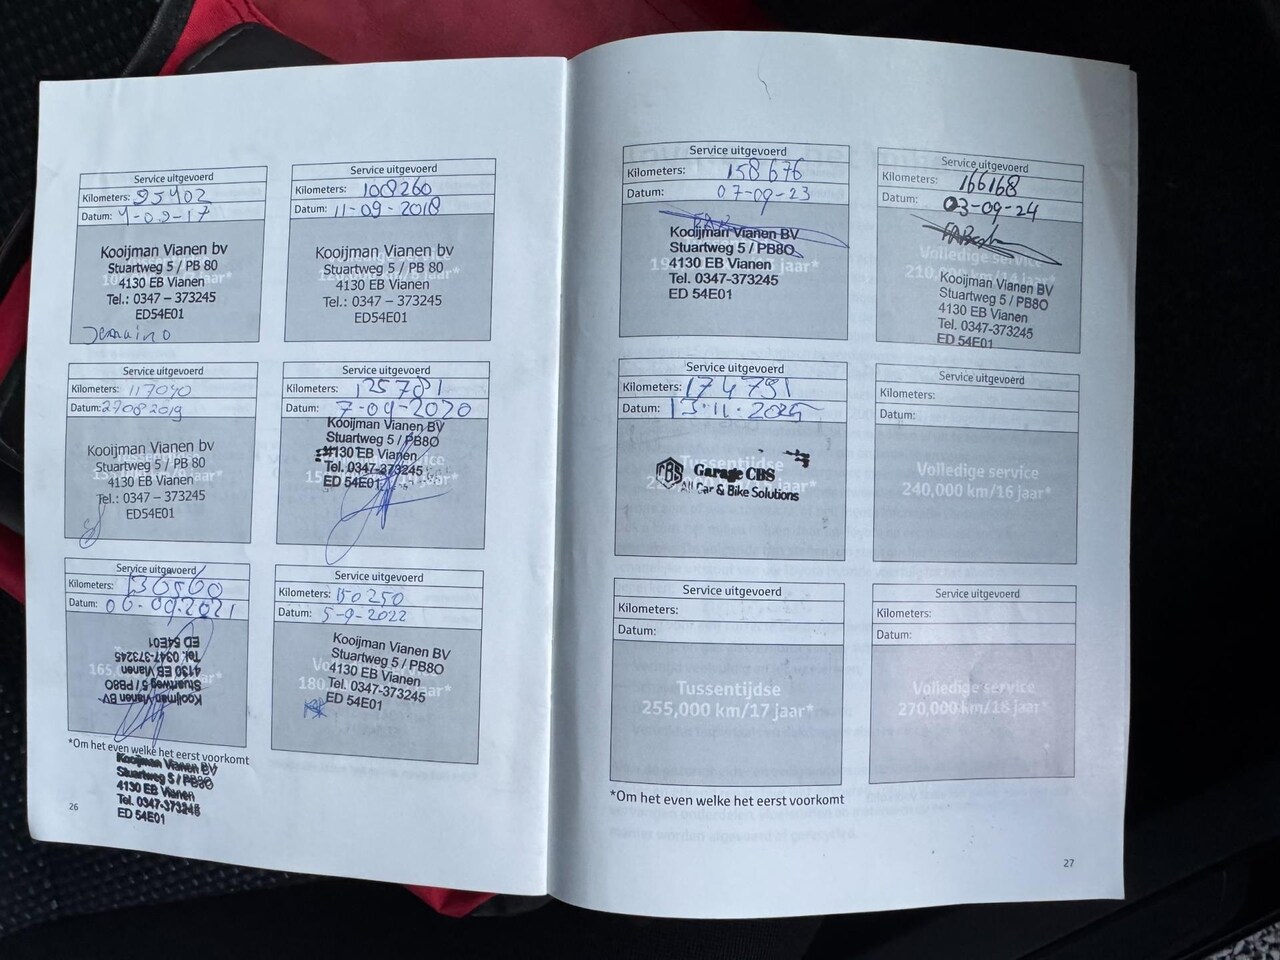 Service uitgevoerd
Kilometers: 95402
Datum: 7-09-17
Kooijman Vianen bv
Stuartweg 5 / PB 80
4130 EB Vianen
Tel.: 0347 – 373245
ED54E01
Service uitgevoerd
Kilometers: 108260
Datum: 11-09-2018
Kooijman Vianen bv
Stuartweg 5 / PB 80
4130 EB Vianen
Tel.: 0347 – 373245
ED54E01
Service uitgevoerd
Kilometers: 117040
Datum: 27082019
Kooijman Vianen bv
Stuartweg 5 / PB 80
4130 EB Vianen
Tel.: 0347 – 373245
ED54E01
Service uitgevoerd
Kilometers: 125781
Datum: 7-09-2020
Kooijman Vianen BV
Stuartweg 5 / PB80
4130 EB Vianen
Tel. 0347-373245
ED 54E01
Service uitgevoerd
Kilometers: 136560
Datum: 06-09-2021
Kooijman Vianen BV
Stuartweg 5 / PB80
4130 EB Vianen
Tel. 0347-373245
ED 54E01
Service uitgevoerd
Kilometers: 150250
Datum: 5-9-2022
Kooijman Vianen BV
Stuartweg 5 / PB80
4130 EB Vianen
Tel. 0347-373245
ED 54E01
*Om het even welke het eerst voorkomt
Kooijman Vianen BV
Stuartweg 5 / PB80
4130 EB Vianen
Tel. 0347-373245
ED 54E01
26
Service uitgevoerd
Kilometers: 158676
Datum: 07-09-23
Kooijman Vianen BV
Stuartweg 5 / PB80
4130 EB Vianen
Tel. 0347-373245
ED 54E01
Service uitgevoerd
Kilometers: 166168
Datum: 03-09-24
Volledige service
210,000 km/14 jaar*
Kooijman Vianen BV
Stuartweg 5 / PB80
4130 EB Vianen
Tel. 0347-373245
ED 54E01
Service uitgevoerd
Kilometers: 174791
Datum: 13.11.2025
Tussentijdse
Garage CBS
All Car & Bike Solutions
Service uitgevoerd
Kilometers:
Datum:
Volledige service
240,000 km/16 jaar*
Service uitgevoerd
Kilometers:
Datum:
Tussentijdse
255,000 km/17 jaar*
Service uitgevoerd
Kilometers:
Datum:
Volledige service
270,000 km/18 jaar*
*Om het even welke het eerst voorkomt
27